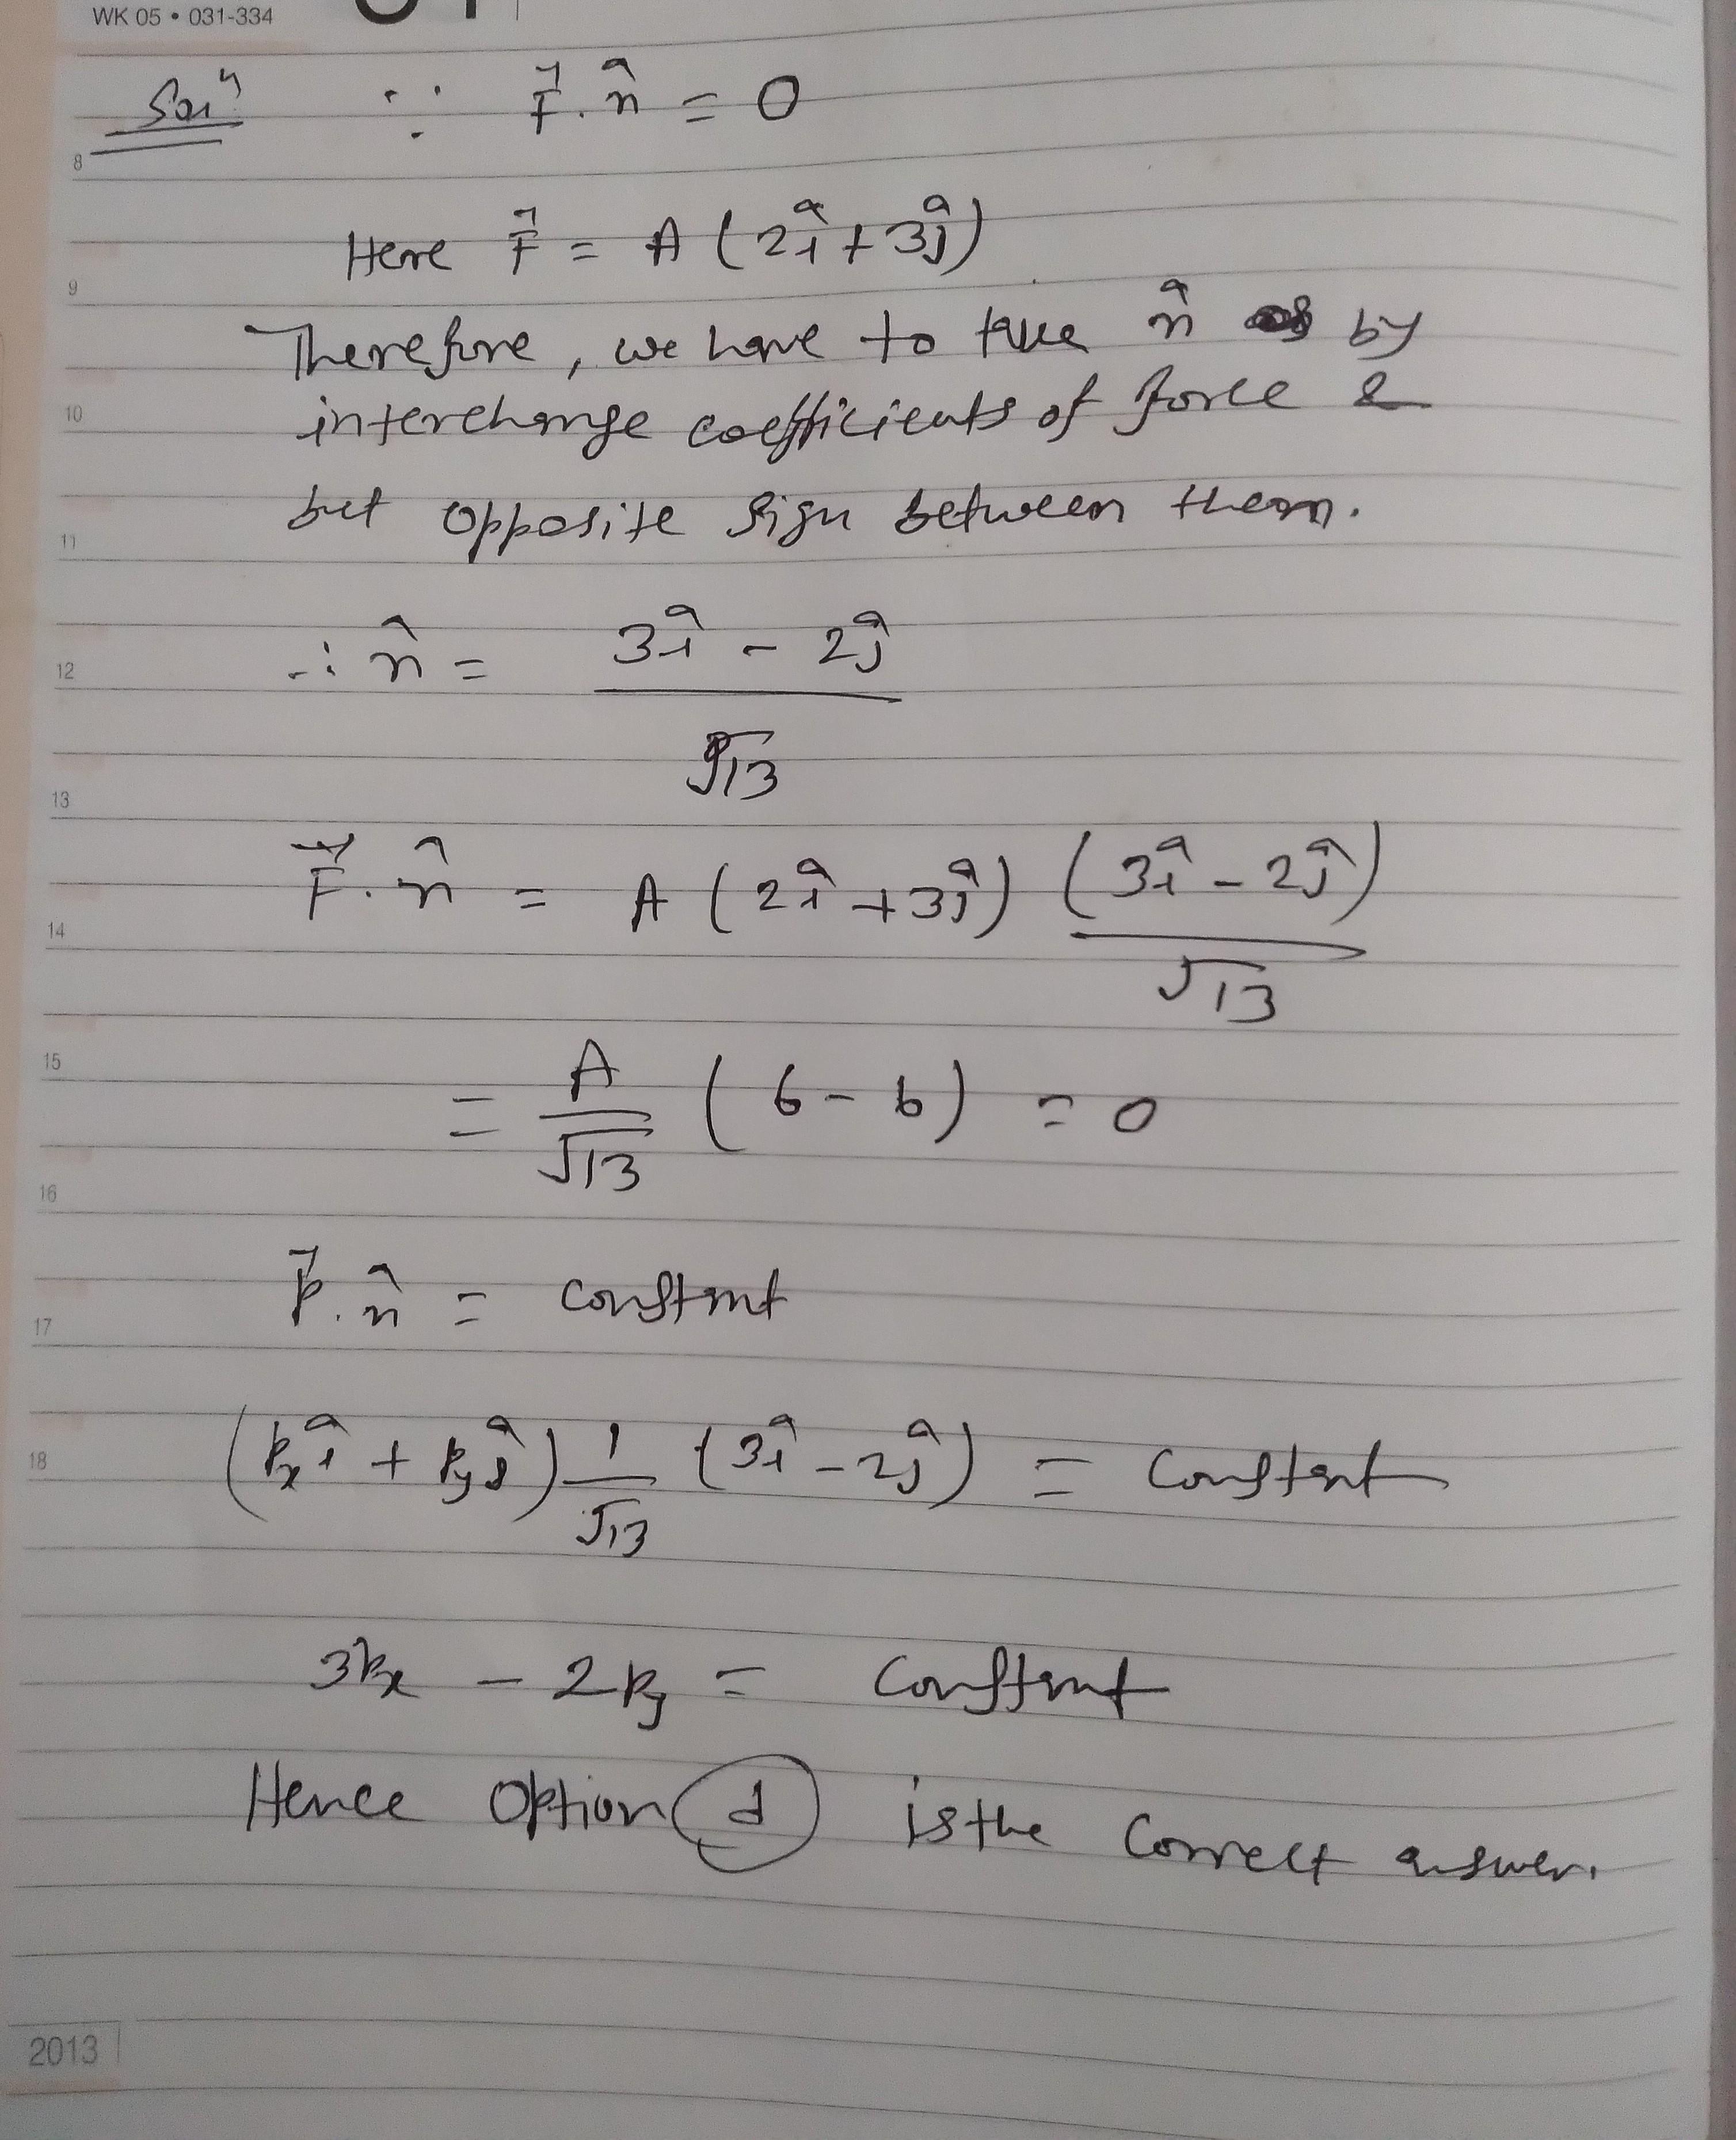 WK 05 • 031-334
Solⁿ ∵ F⃗.n̂ = 0
8
Here F⃗ = A (2î+3ĵ)
9
Therefore, we have to take n̂ by
10
interchange coefficients of force &
but opposite sign between them.
11
∴ n̂ = (3î - 2ĵ)/√13
12
13
F⃗.n̂ = A (2î+3ĵ) (3î - 2ĵ)/√13
14
= A/√13 (6-6) = 0
15
16
p⃗.n̂ = constant
17
(pₓî + pᵧĵ) 1/√13 (3î - 2ĵ) = Constant
18
3pₓ - 2pᵧ = Constant
Hence Option d is the Correct answer.
2013